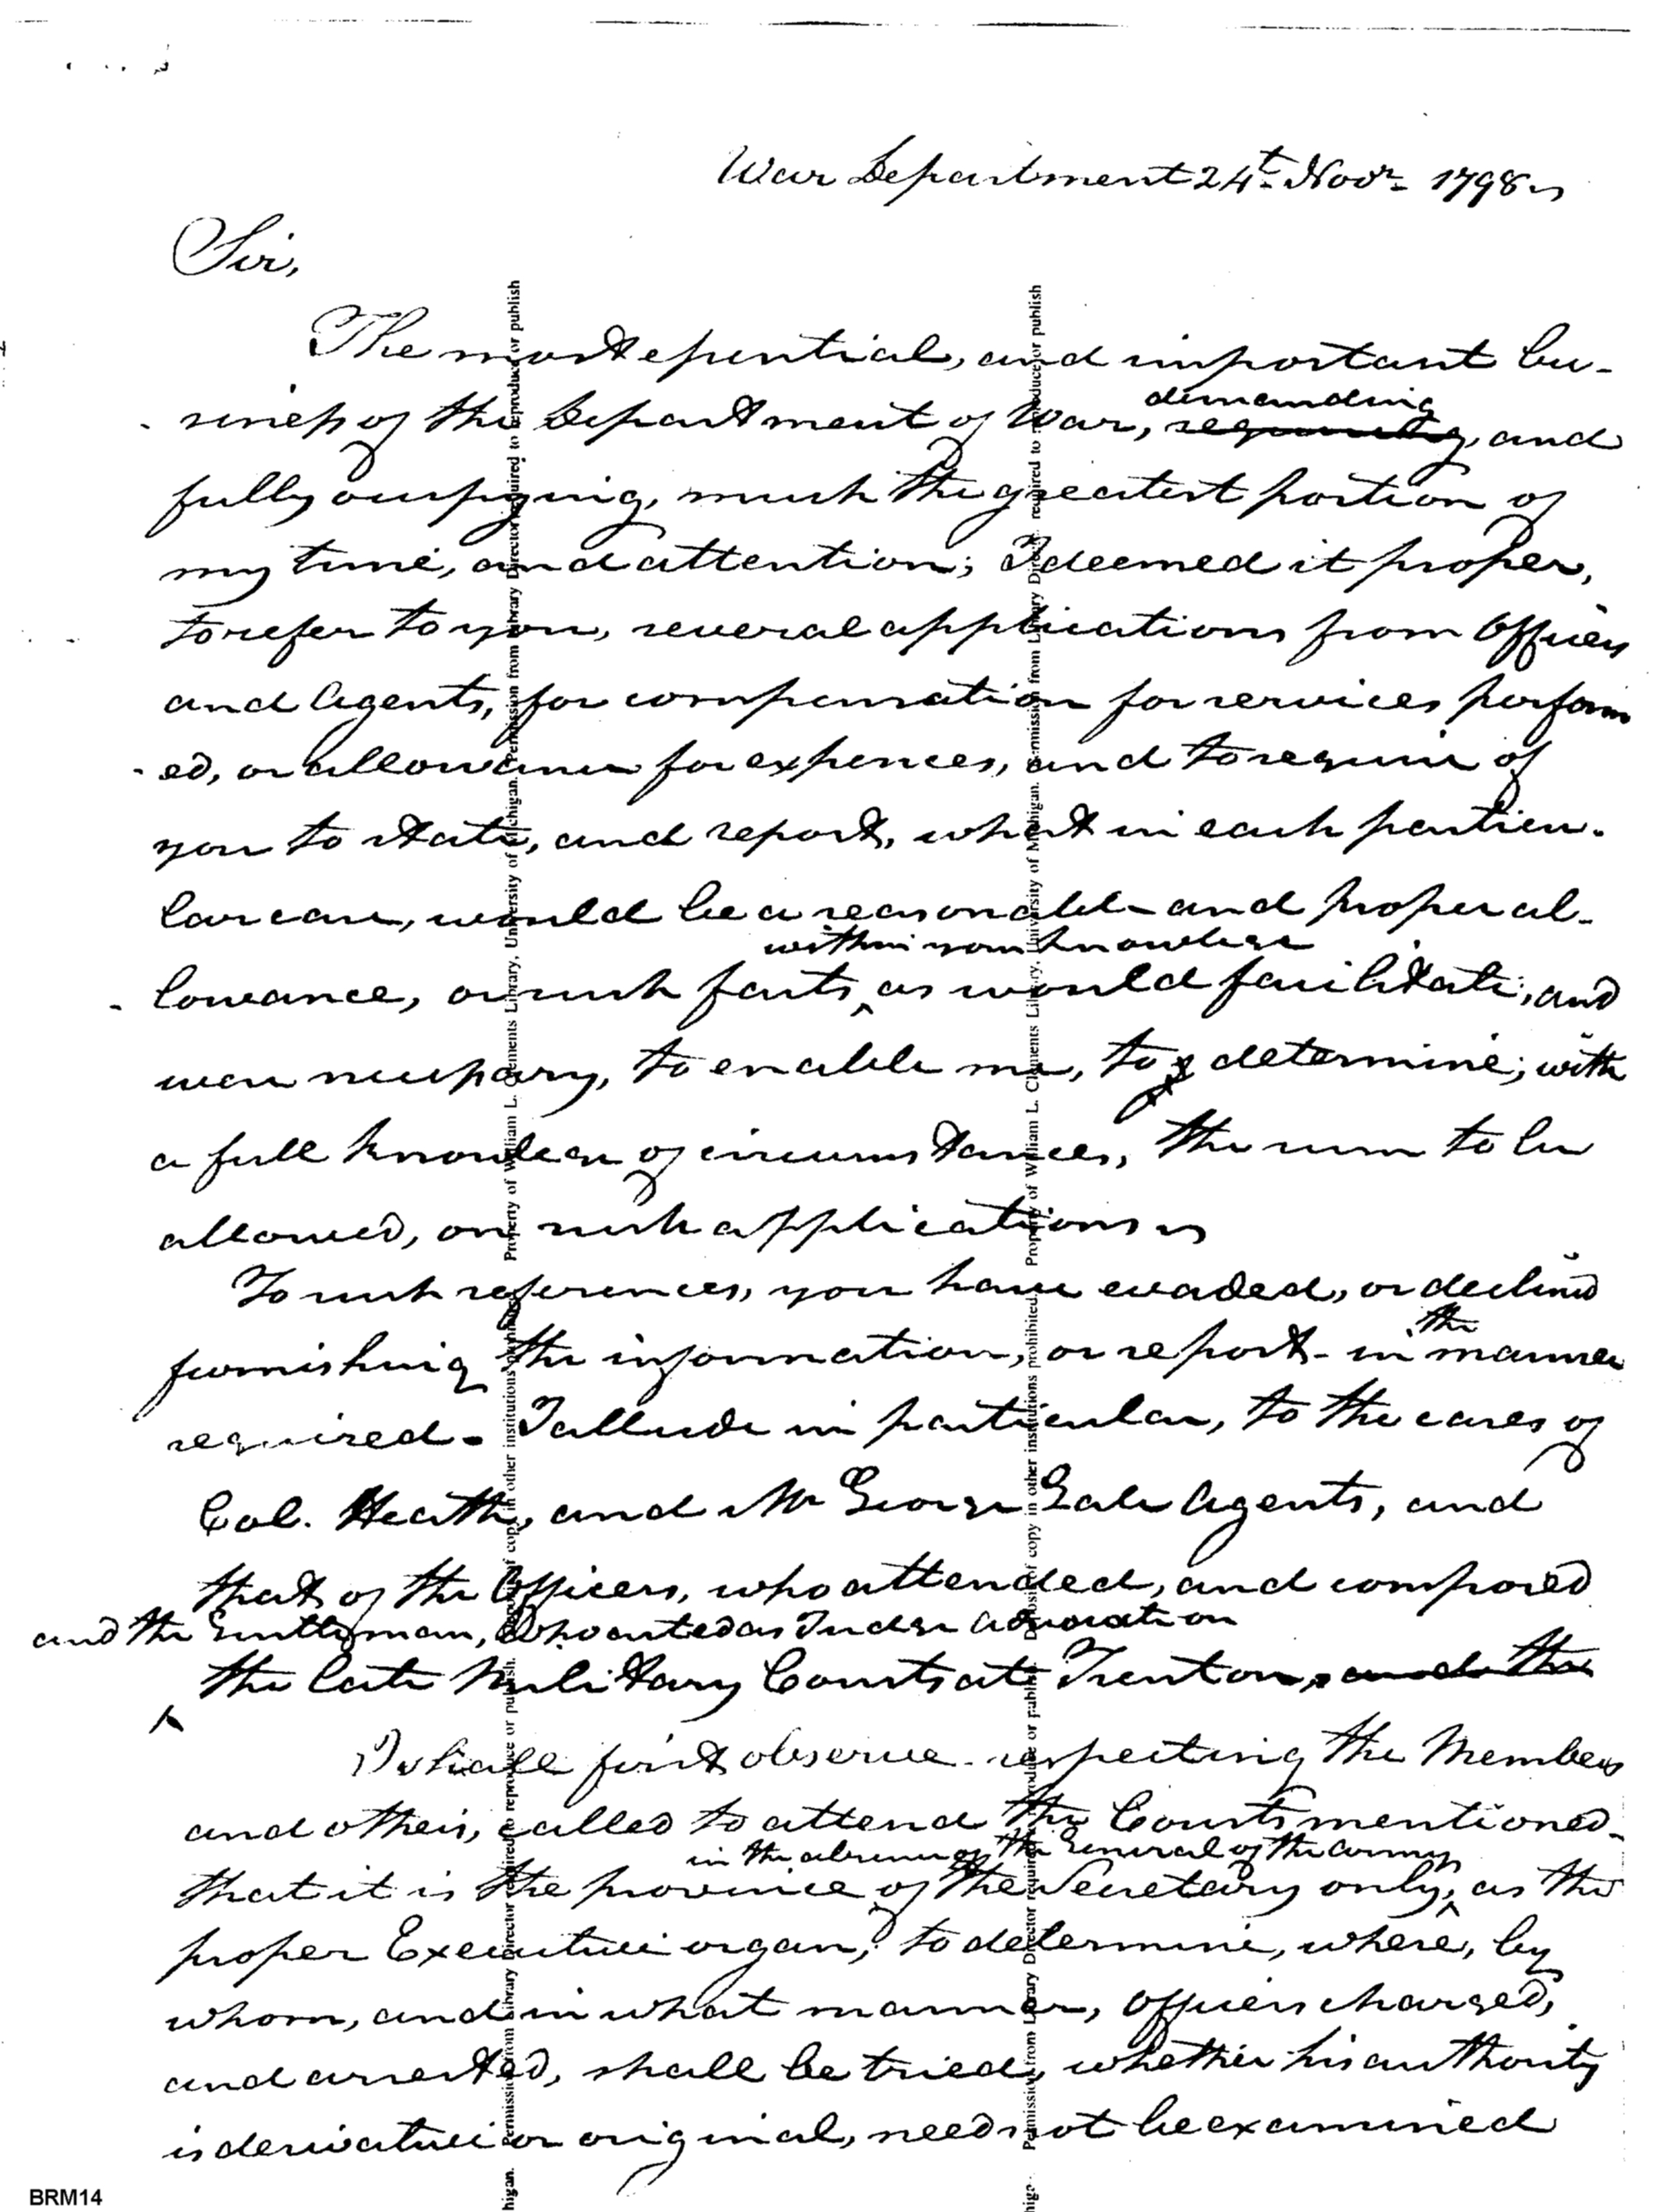 War Department 24th Novr 1798
Sir,
The most essential, and important bu-
siness of the Department of War, demanding and
fully occupying, much the greatest portion of
my time, and attention; I deemed it proper,
to refer to you, several applications from Officers
and Agents, for compensation for services perform
ed, or allowance for expences, and to require of
you to state, and report, what in each particu-
lar case, would be a reasonable and proper al-
within your knowlege
lowance, or such facts, as would facilitate, and
were necessary, to enable me, to determine; with
a full knowlege of circumstances, the sum to be
allowed, on such applications
To such references, you have evaded, or declined
furnishing the information, or report - in the manner
required - I allude in particular, to the cases of
Col. Heath, and Mr George Gale Agents, and
that of the Officers, who attended, and composed
and the Gentleman, who acted as Judge Advocate on
the late Military Courts at Trenton, and the
I shall first observe - respecting the Members
and others, called to attend the Courts mentioned -
in the absence of the General of the army
that it is the province of the Secretary only, as the
proper Executive organ, to determine, where, by
whom, and in what manner, Officers charged,
and arrested, shall be tried, whether his authority
is derivative or original, needs not be examined
Property of William L. Clements Library, University of Michigan. Permission from Library Director required to reproduce or publish
Property of William L. Clements Library, University of Michigan. Permission from Library Director required to reproduce or publish
higan. Permission from Library Director required to reproduce or publish. Deposit of copy in other institutions prohibited.
Permission from Library Director required to reproduce or publish. Deposit of copy in other institutions prohibited.
BRM14